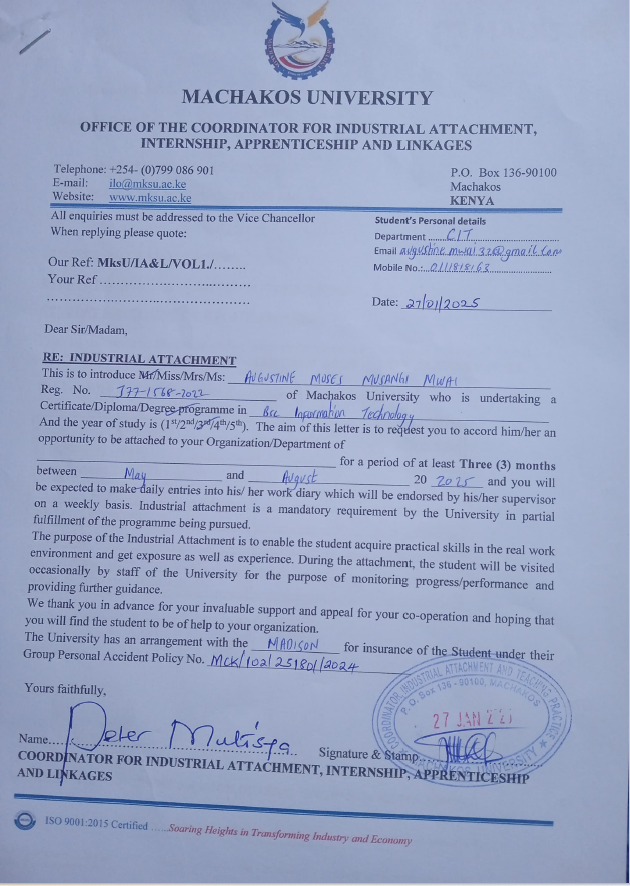 MACHAKOS UNIVERSITY
OFFICE OF THE COORDINATOR FOR INDUSTRIAL ATTACHMENT,
INTERNSHIP, APPRENTICESHIP AND LINKAGES
Telephone: +254- (0)799 086 901
E-mail: ilo@mksu.ac.ke
Website: www.mksu.ac.ke
P.O. Box 136-90100
Machakos
KENYA
All enquiries must be addressed to the Vice Chancellor
When replying please quote:
Our Ref: MksU/IA&L/VOL1./........
Your Ref ....................................
................................................
Student's Personal details
Department ......CIT..........................
Email augustine.mwai.32@gmail.com
Mobile No.:...0111818163......................
Date: 27/01/2025
Dear Sir/Madam,
RE: INDUSTRIAL ATTACHMENT
This is to introduce Mr/Miss/Mrs/Ms: AUGUSTINE MOSES MUSANGI MWAI
Reg. No. J77-1568-2022 of Machakos University who is undertaking a
Certificate/Diploma/Degree programme in Bsc Information Technology
And the year of study is (1st/2nd/3rd/4th/5th). The aim of this letter is to request you to accord him/her an
opportunity to be attached to your Organization/Department of
for a period of at least Three (3) months
between May and August 20 2025 and you will
be expected to make daily entries into his/ her work diary which will be endorsed by his/her supervisor
on a weekly basis. Industrial attachment is a mandatory requirement by the University in partial
fulfillment of the programme being pursued.
The purpose of the Industrial Attachment is to enable the student acquire practical skills in the real work
environment and get exposure as well as experience. During the attachment, the student will be visited
occasionally by staff of the University for the purpose of monitoring progress/performance and
providing further guidance.
We thank you in advance for your invaluable support and appeal for your co-operation and hoping that
you will find the student to be of help to your organization.
The University has an arrangement with the MADISON for insurance of the Student under their
Group Personal Accident Policy No. MCK/102/25180/2024
Yours faithfully,
Name.... Peter Mutisya
Signature & Stamp
COORDINATOR INDUSTRIAL ATTACHMENT AND TEACHING PRACTICE
P.O. Box 136 - 90100, MACHAKOS
27 JAN
MACHAKOS UNIVERSITY
COORDINATOR FOR INDUSTRIAL ATTACHMENT, INTERNSHIP, APPRENTICESHIP
AND LINKAGES
ISO 9001:2015 Certified ......Soaring Heights in Transforming Industry and Economy